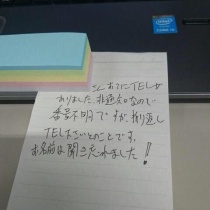 さんあてにTELが
ありました。非通知なので
番号不明ですが、折り返し
TEL下さいとのことです。
お名前は聞きそびれました!
intel